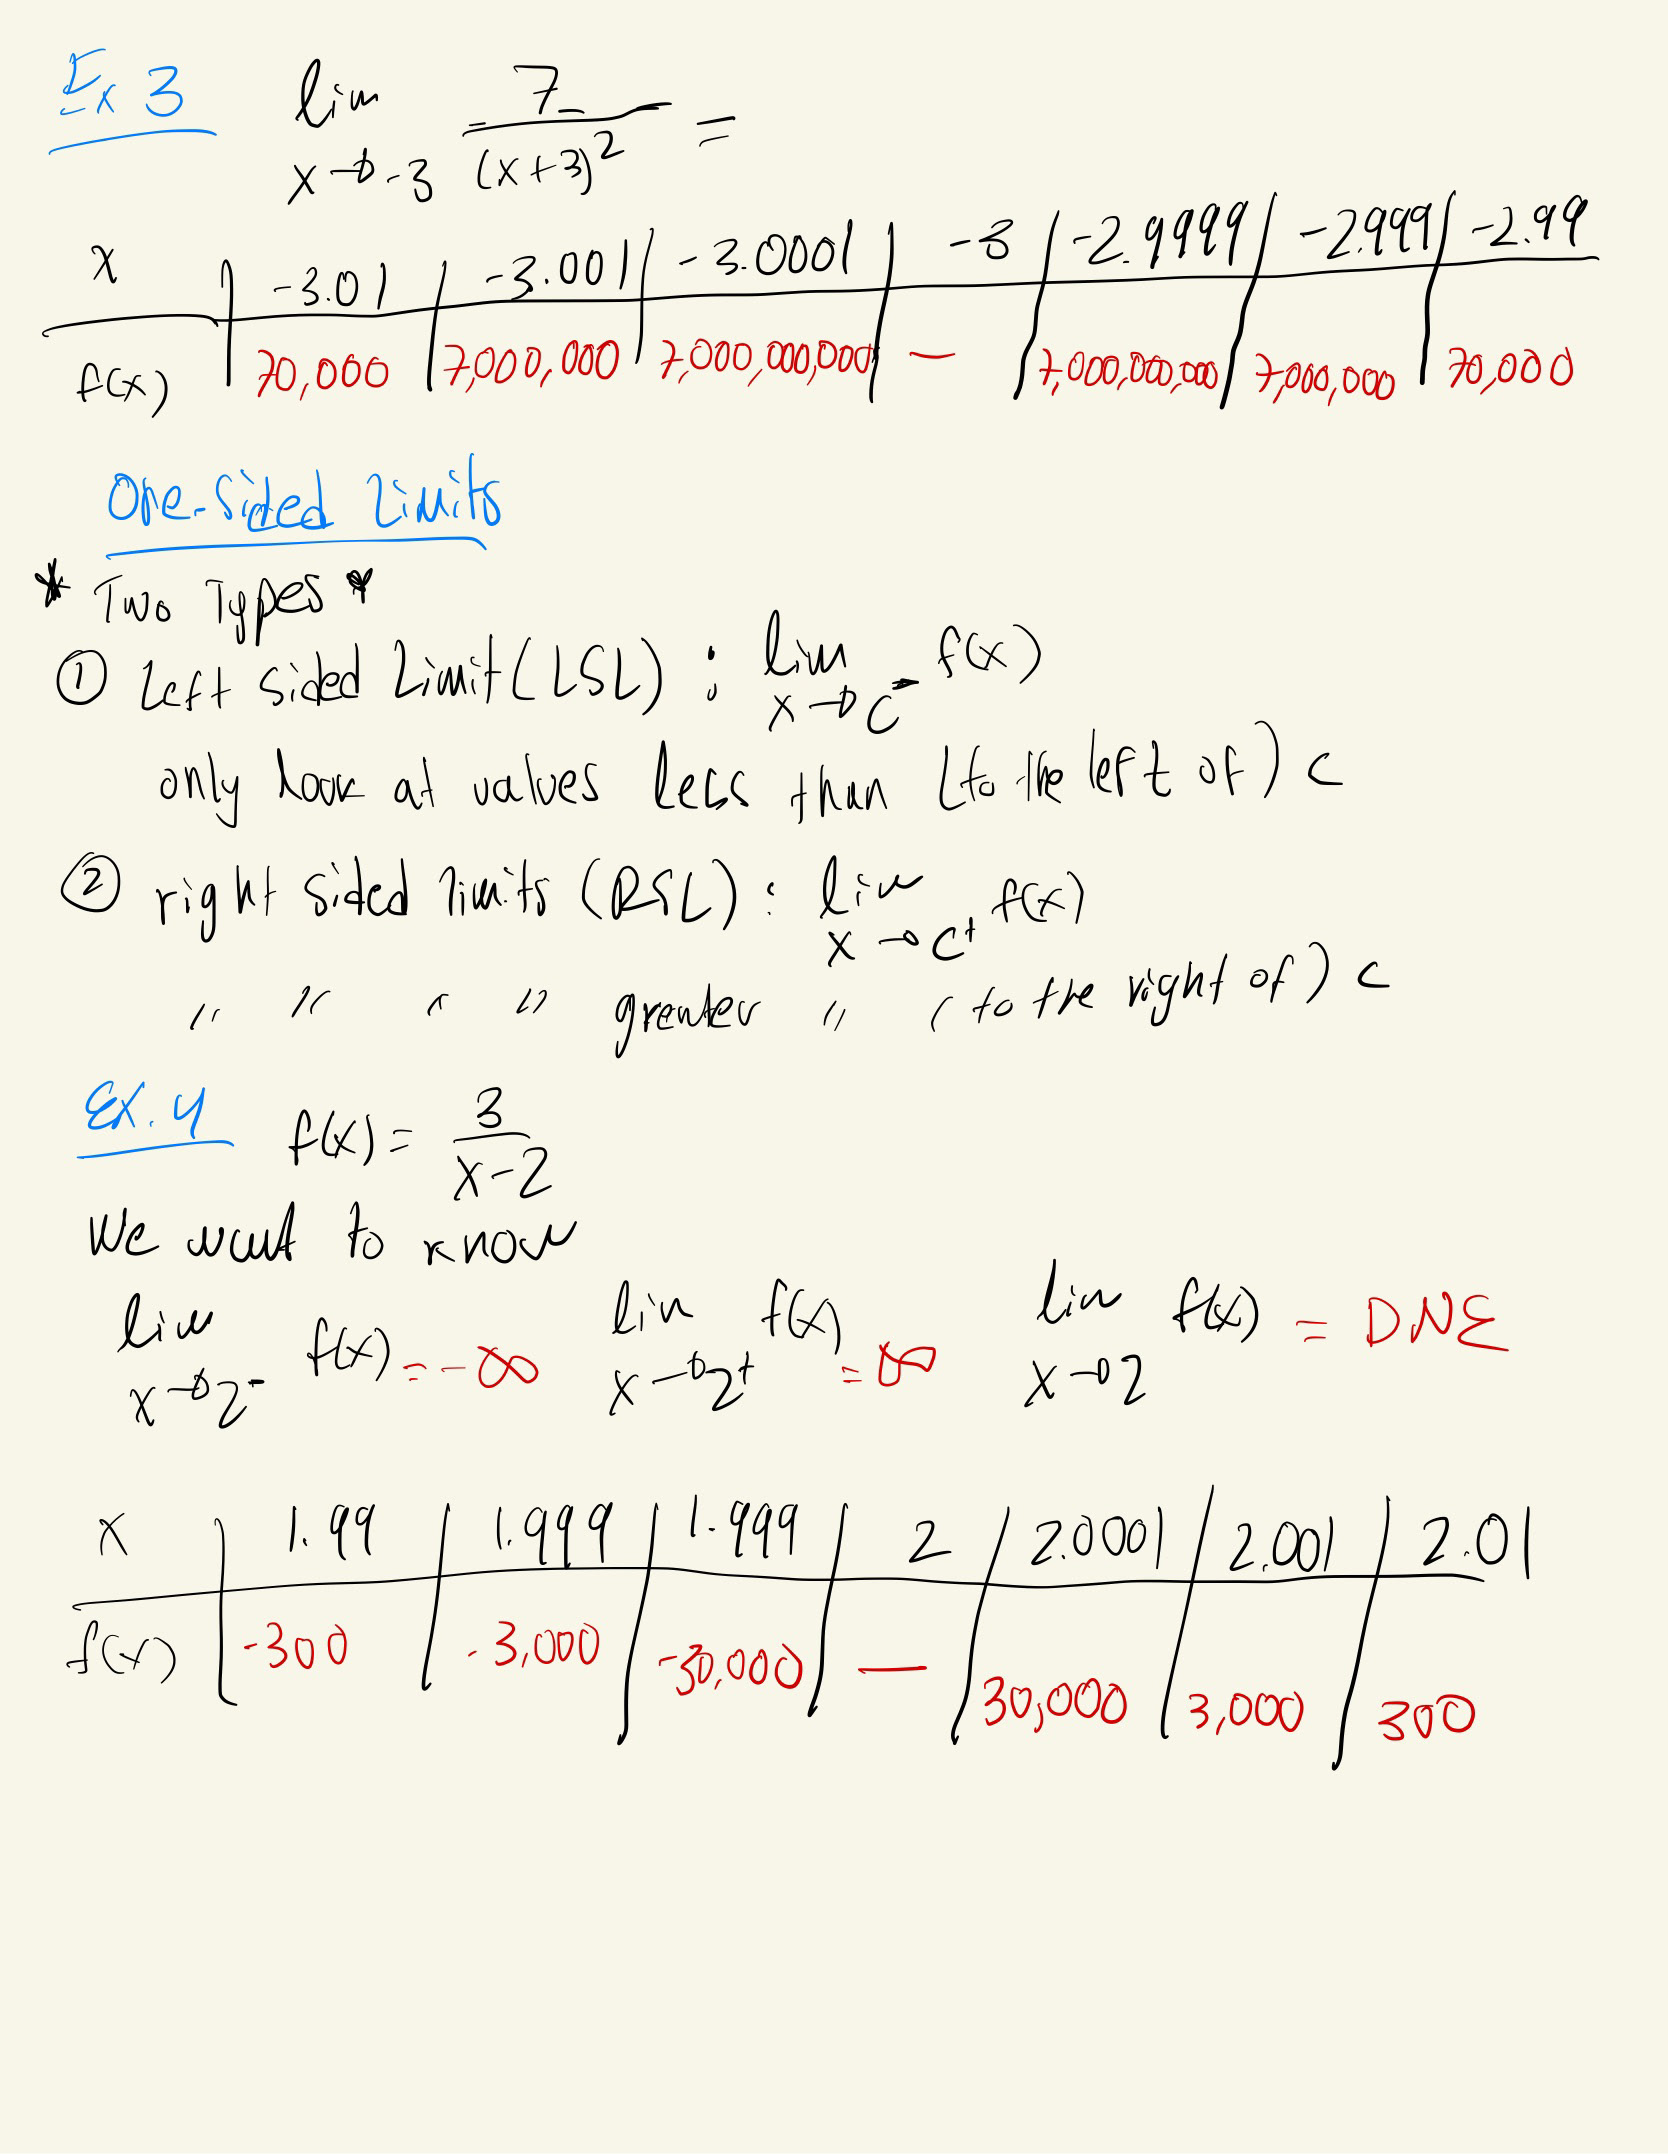 Ex 3 lim x→-3 7/(x+3)² =
x | -3.01 | -3.001 | -3.0001 | -3 | -2.9999 | -2.999 | -2.99
f(x) | 70,000 | 7,000,000 | 7,000,000,000 | — | 7,000,000,000 | 7,000,000 | 70,000
One-sided Limits
* Two Types *
① Left sided Limit (LSL) : lim x→c⁻ f(x)
only look at values less than (to the left of) c
② right sided limits (RSL) : lim x→c⁺ f(x)
" " " " greater " (to the right of) c
Ex. 4 f(x) = 3/(x-2)
We want to know
lim x→2⁻ f(x) = -∞ lim x→2⁺ f(x) = ∞ lim x→2 f(x) = DNE
x | 1.99 | 1.999 | 1.999 | 2 | 2.0001 | 2.001 | 2.01
f(x) | -300 | -3,000 | -30,000 | — | 30,000 | 3,000 | 300